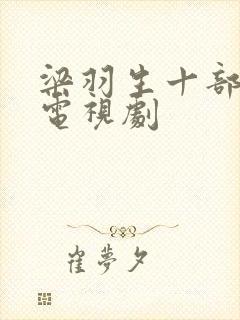 梁羽生十部
電視劇
崔夢夕